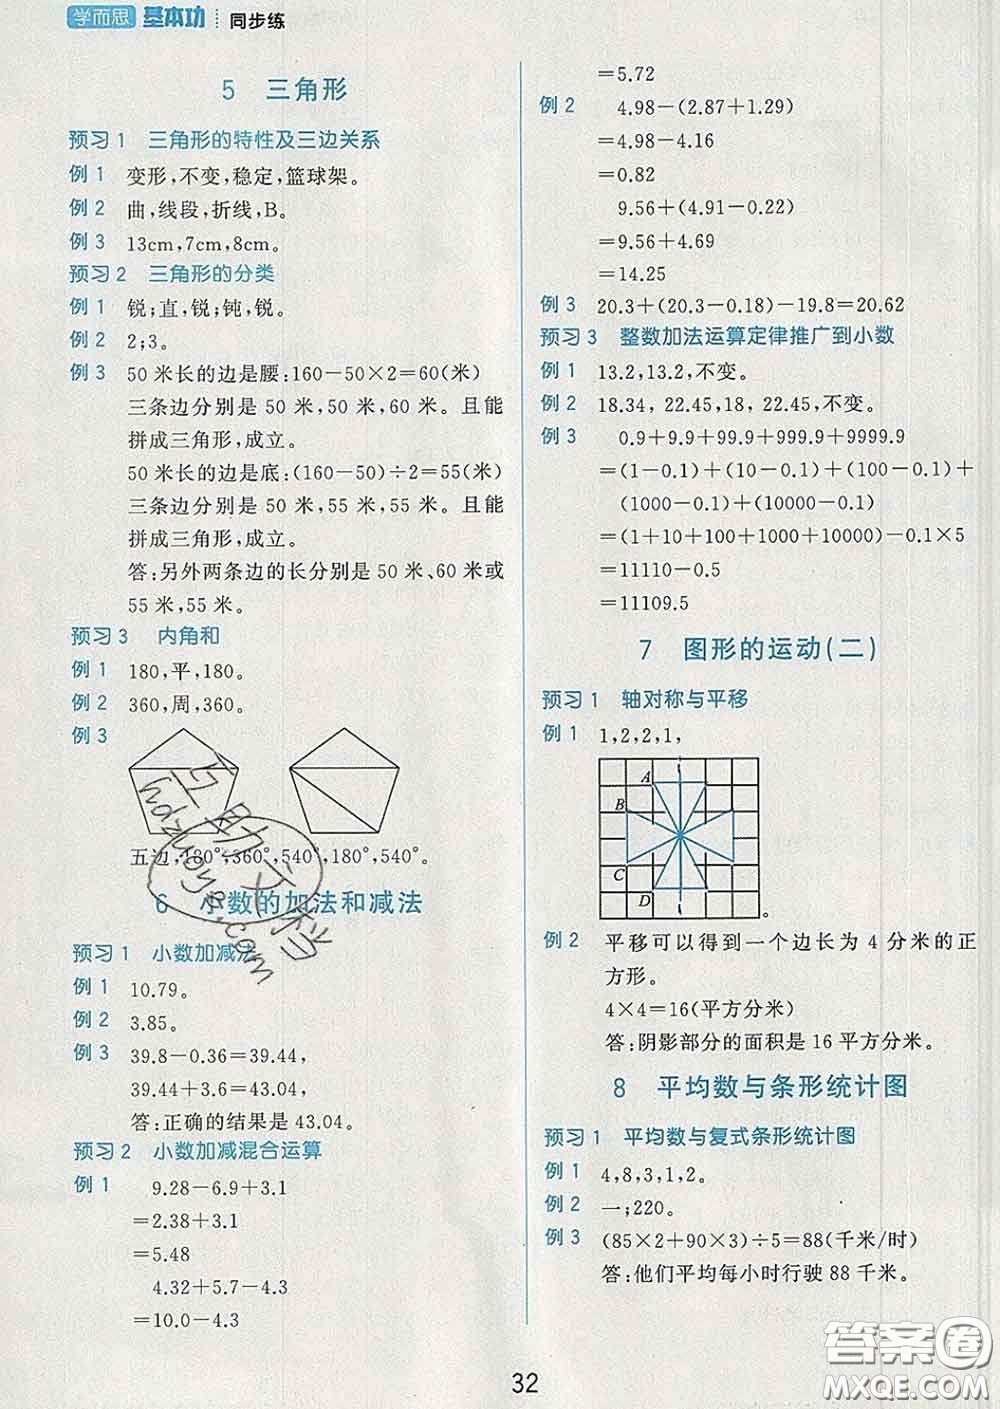 学而思 基本功 同步练
5 三角形
预习1 三角形的特性及三边关系
例1 变形,不变,稳定,篮球架。
例2 曲,线段,折线,B。
例3 13cm,7cm,8cm。
预习2 三角形的分类
例1 锐;直,锐;钝,锐。
例2 2;3。
例3 50米长的边是腰:160-50×2=60(米)
三条边分别是50米,50米,60米。且能
拼成三角形,成立。
50米长的边是底:(160-50)÷2=55(米)
三条边分别是50米,55米,55米。且能
拼成三角形,成立。
答:另外两条边的长分别是50米、60米或
55米,55米。
预习3 内角和
例1 180,平,180。
例2 360,周,360。
例3
五边,180°,360°,540°,180°,540°。
6 小数的加法和减法
预习1 小数加减法
例1 10.79。
例2 3.85。
例3 39.8-0.36=39.44,
39.44+3.6=43.04,
答:正确的结果是43.04。
预习2 小数加减混合运算
例1 9.28-6.9+3.1
=2.38+3.1
=5.48
4.32+5.7-4.3
=10.0-4.3
=5.72
例2 4.98-(2.87+1.29)
=4.98-4.16
=0.82
9.56+(4.91-0.22)
=9.56+4.69
=14.25
例3 20.3+(20.3-0.18)-19.8=20.62
预习3 整数加法运算定律推广到小数
例1 13.2,13.2,不变。
例2 18.34, 22.45,18, 22.45,不变。
例3 0.9+9.9+99.9+999.9+9999.9
=(1-0.1)+(10-0.1)+(100-0.1)+
(1000-0.1)+(10000-0.1)
=(1+10+100+1000+10000)-0.1×5
=11110-0.5
=11109.5
7 图形的运动(二)
预习1 轴对称与平移
例1 1,2,2,1,
A
B
C
D
。
例2 平移可以得到一个边长为4分米的正
方形。
4×4=16(平方分米)
答:阴影部分的面积是16平方分米。
8 平均数与条形统计图
预习1 平均数与复式条形统计图
例1 4,8,3,1,2。
例2 一;220。
例3 (85×2+90×3)÷5=88(千米/时)
答:他们平均每小时行驶88千米。
32
互助文档
hdzuoye.com
答案圈
MXQE.COM